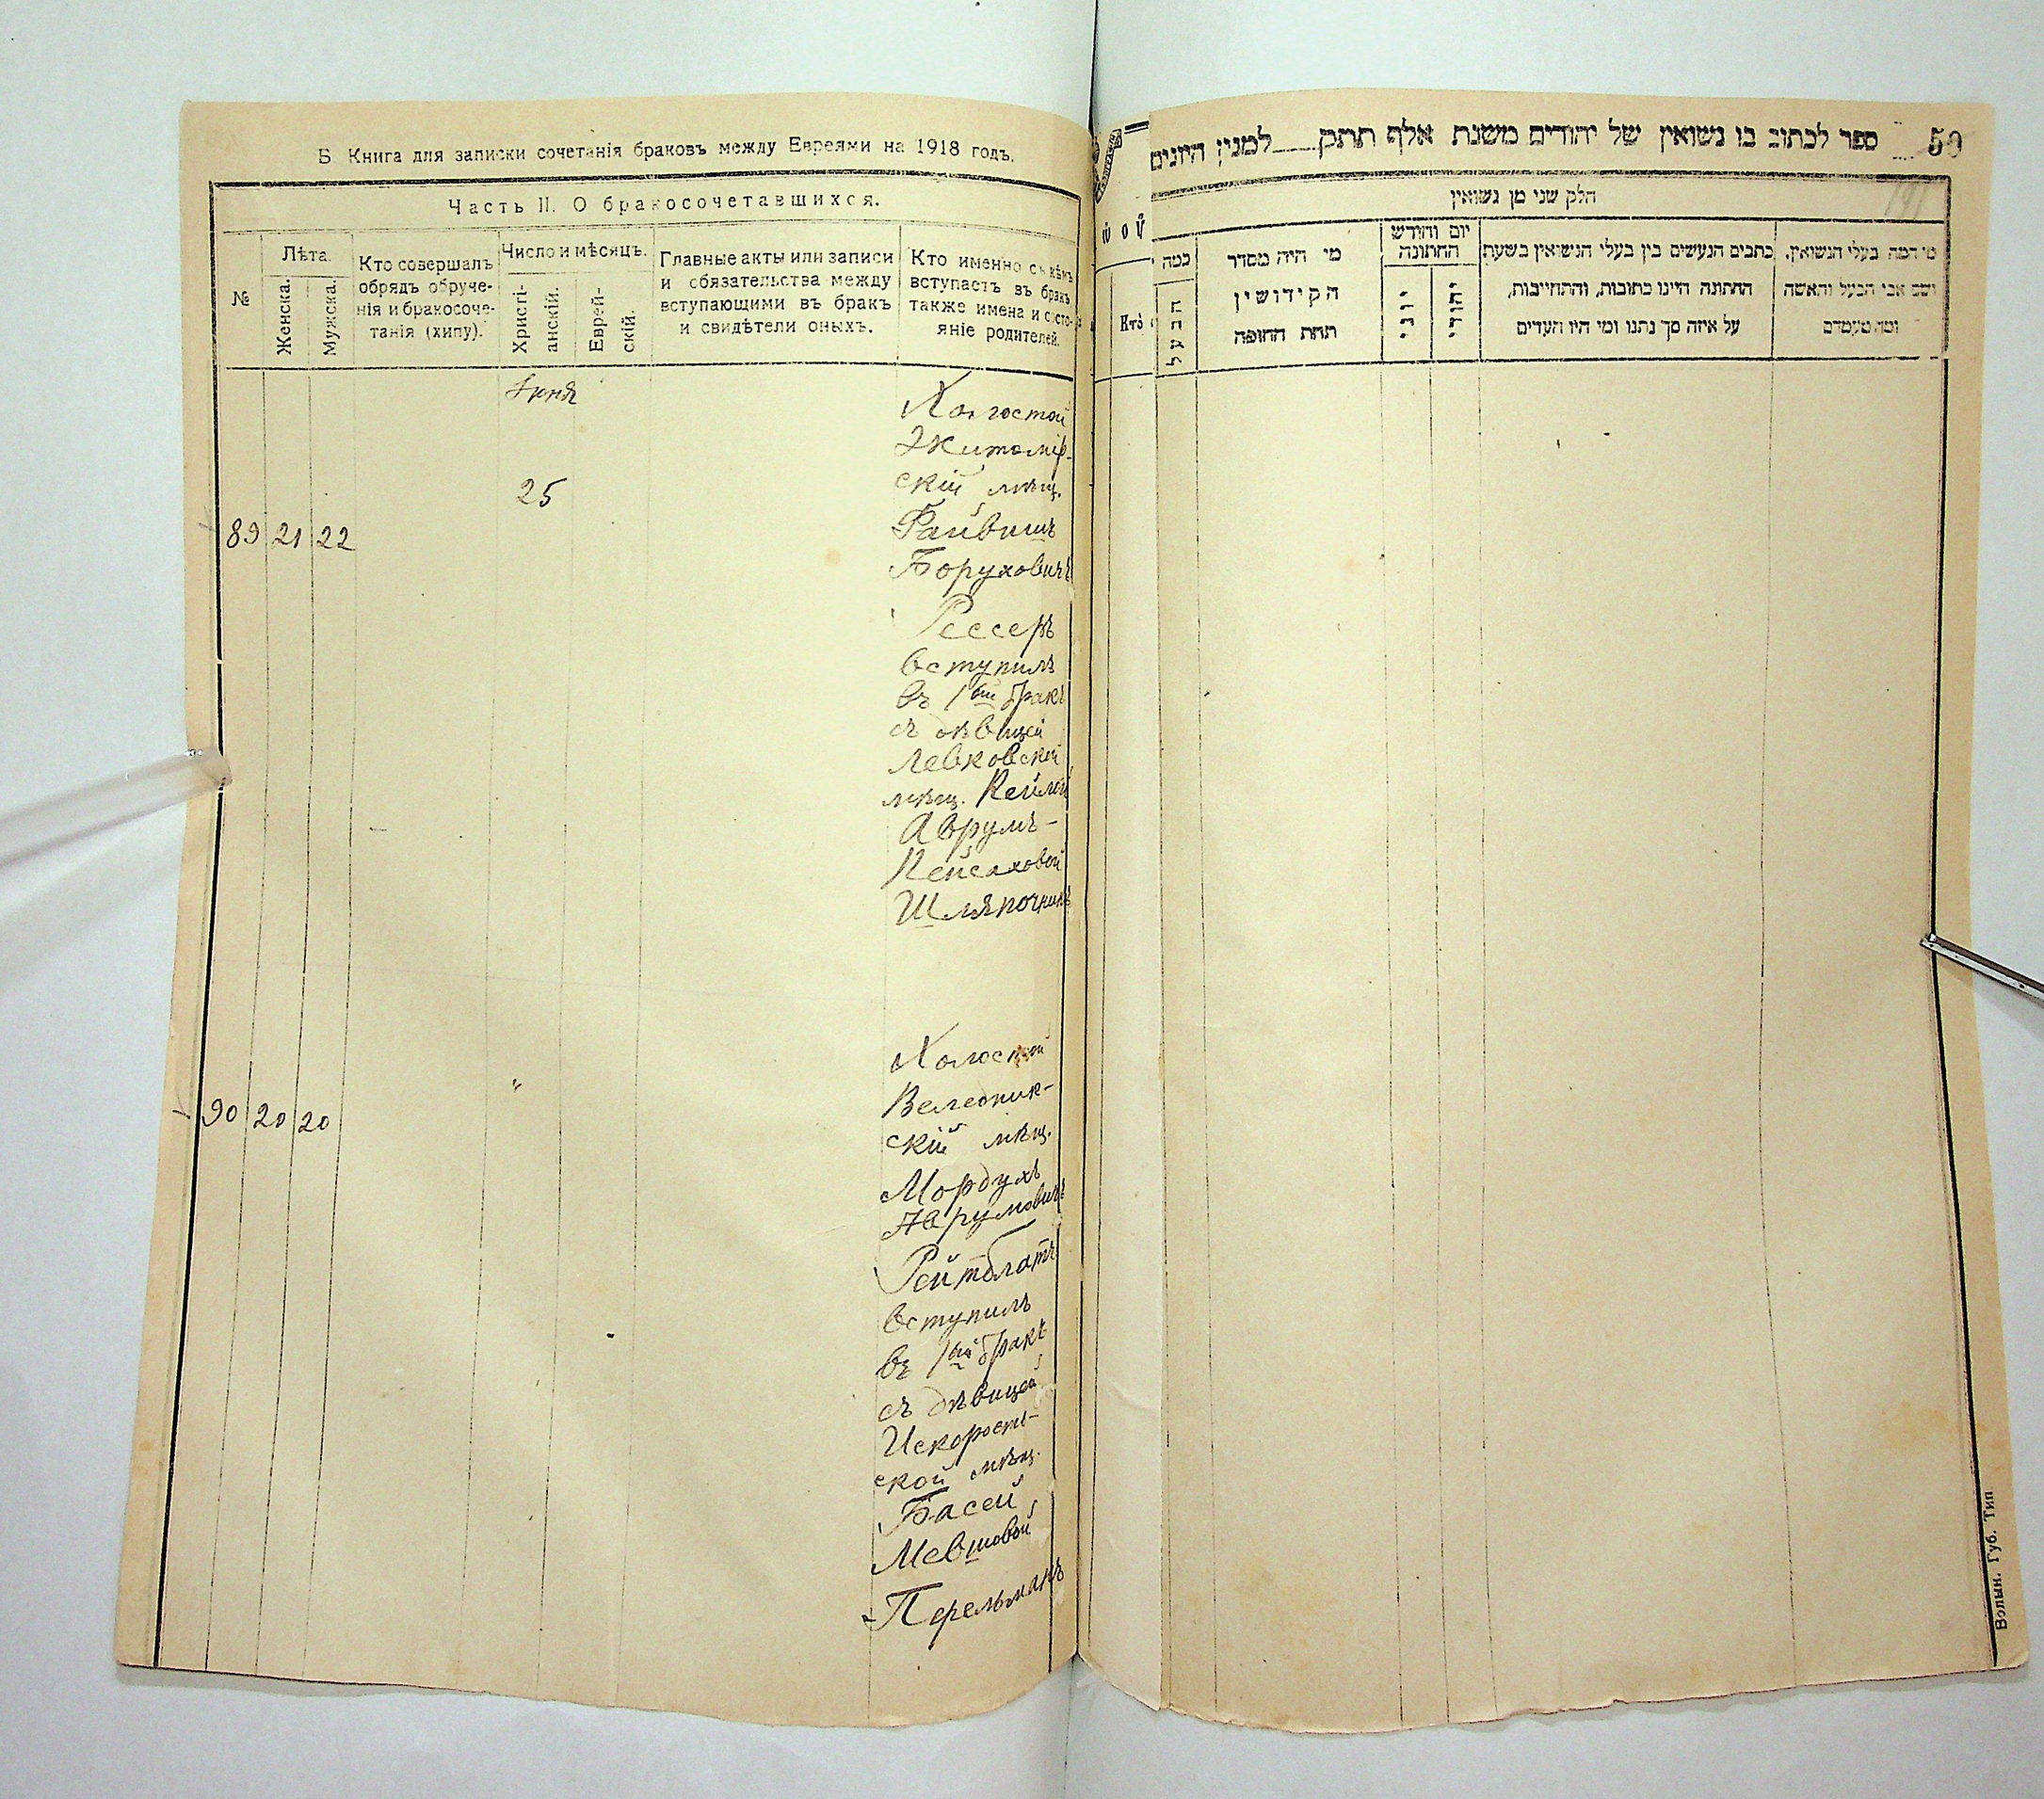 Б Книга для записки сочетанія браковъ между Евреями на 1918 годъ.
Часть II. О бракосочетавшихся.
№
Лѣта.
Женска.
Мужска.
Кто совершалъ
обрядъ обруче-
нія и бракосоче-
танія (хипу).
Число и мѣсяцъ.
Христі-
анскій.
Еврей-
скій.
Главные акты или записи
и обязательства между
вступающими въ бракъ
и свидѣтели оныхъ.
Кто именно съ кѣмъ
вступаетъ въ бракъ
также имена и состо-
яніе родителей.
Іюня
25
89 21 22
Холостой
Житомір-
скій мѣщ.
Файвишъ
Боруховичъ
Рессеръ
вступилъ
въ 1ый бракъ
съ дѣвицей
Левковской
мѣщ. Кейлей
Аврумъ-
Пейсаховой
Шляпочникъ
90 20 20
"
Холостой
Веледник-
скій мѣщ.
Мордухъ
Аврумовичъ
Рейтблатъ
вступилъ
въ 1ый бракъ
съ дѣвицей
Искорост-
ской мѣщ.
Басей
Мевшовой
Перельманъ
ספר לכתוב בו נשואין של יהודים משנת אלף תתק למנין היונים
50
חלק שני מן נשואין
כמה
הבעל
מי היה מסדר
הקידושין
תחת החופה
יום וחודש
החתונה
יוני
יהודי
כתבים הנעשים בין בעלי הנשואין בשעת
החתונה היינו כתובות, והתחייבות,
על איזה סך נתנו ומי היו העדים
מי המה בעלי הנשואין,
ושם אבי הבעל והאשה
ומה מעמדם
Кто
Волын. Губ. Тип